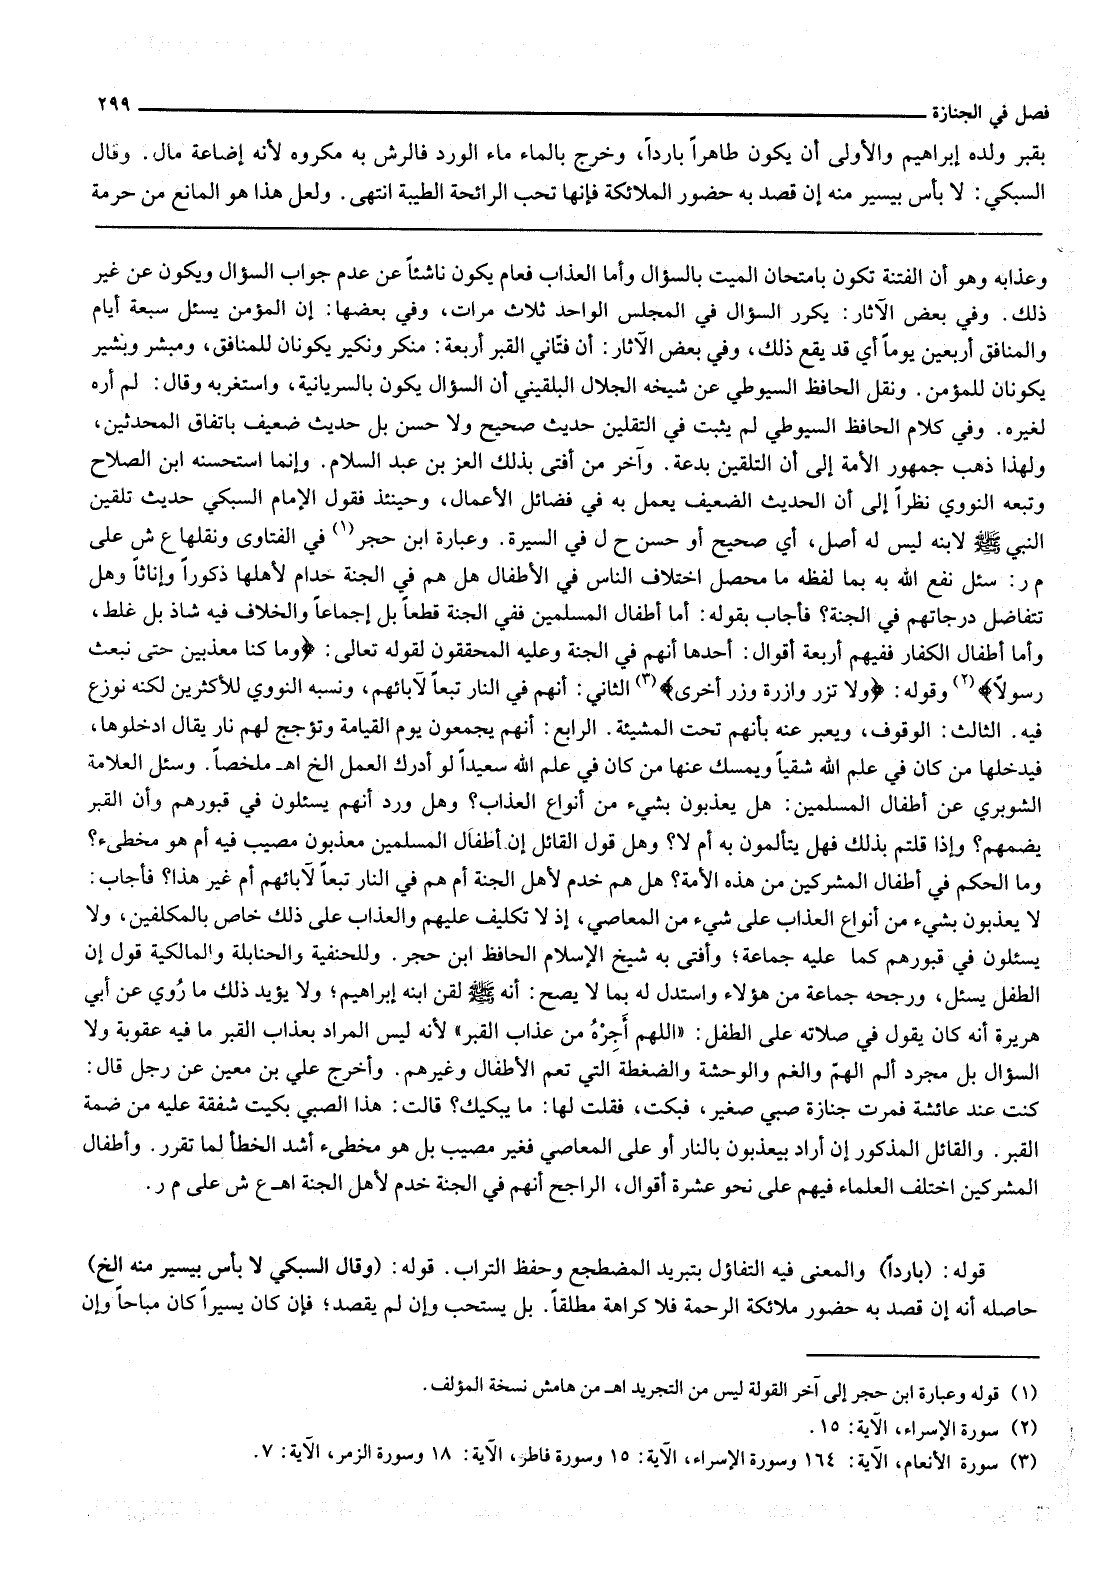 فصل في الجنازة ٢٩٩
بقبر ولده إبراهيم والأولى أن يكون طاهراً بارداً، وخرج بالماء ماء الورد فالرش به مكروه لأنه إضاعة مال. وقال
السبكي: لا بأس بيسير منه إن قصد به حضور الملائكة فإنها تحب الرائحة الطيبة انتهى. ولعل هذا هو المانع من حرمة
وعذابه وهو أن الفتنة تكون بامتحان الميت بالسؤال وأما العذاب فعام يكون ناشئاً عن عدم جواب السؤال ويكون عن غير
ذلك. وفي بعض الآثار: يكرر السؤال في المجلس الواحد ثلاث مرات، وفي بعضها: إن المؤمن يسئل سبعة أيام
والمنافق أربعين يوماً أي قد يقع ذلك، وفي بعض الآثار: أن فتّاني القبر أربعة: منكر ونكير يكونان للمنافق، ومبشر وبشير
يكونان للمؤمن. ونقل الحافظ السيوطي عن شيخه الجلال البلقيني أن السؤال يكون بالسريانية، واستغربه وقال: لم أره
لغيره. وفي كلام الحافظ السيوطي لم يثبت في التقلين حديث صحيح ولا حسن بل حديث ضعيف باتفاق المحدثين،
ولهذا ذهب جمهور الأمة إلى أن التلقين بدعة. وآخر من أفتى بذلك العز بن عبد السلام. وإنما استحسنه ابن الصلاح
وتبعه النووي نظراً إلى أن الحديث الضعيف يعمل به في فضائل الأعمال، وحينئذ فقول الإمام السبكي حديث تلقين
النبي ﷺ لابنه ليس له أصل، أي صحيح أو حسن ح ل في السيرة. وعبارة ابن حجر(١) في الفتاوى ونقلها ع ش على
م ر: سئل نفع الله به بما لفظه ما محصل اختلاف الناس في الأطفال هل هم في الجنة خدام لأهلها ذكوراً وإناثاً وهل
تتفاضل درجاتهم في الجنة؟ فأجاب بقوله: أما أطفال المسلمين ففي الجنة قطعاً بل إجماعاً والخلاف فيه شاذ بل غلط،
وأما أطفال الكفار ففيهم أربعة أقوال: أحدها أنهم في الجنة وعليه المحققون لقوله تعالى: ﴿وما كنا معذبين حتى نبعث
رسولاً﴾(٢) وقوله: ﴿ولا تزر وازرة وزر أخرى﴾(٣) الثاني: أنهم في النار تبعاً لآبائهم، ونسبه النووي للأكثرين لكنه نوزع
فيه. الثالث: الوقوف، ويعبر عنه بأنهم تحت المشيئة. الرابع: أنهم يجمعون يوم القيامة وتؤجج لهم نار يقال ادخلوها،
فيدخلها من كان في علم الله شقياً ويمسك عنها من كان في علم الله سعيداً لو أدرك العمل الخ اهـ ملخصاً. وسئل العلامة
الشوبري عن أطفال المسلمين: هل يعذبون بشيء من أنواع العذاب؟ وهل ورد أنهم يسئلون في قبورهم وأن القبر
يضمهم؟ وإذا قلتم بذلك فهل يتألمون به أم لا؟ وهل قول القائل إن أطفال المسلمين معذبون مصيب فيه أم هو مخطىء؟
وما الحكم في أطفال المشركين من هذه الأمة؟ هل هم خدم لأهل الجنة أم هم في النار تبعاً لآبائهم أم غير هذا؟ فأجاب:
لا يعذبون بشيء من أنواع العذاب على شيء من المعاصي، إذ لا تكليف عليهم والعذاب على ذلك خاص بالمكلفين، ولا
يسئلون في قبورهم كما عليه جماعة؛ وأفتى به شيخ الإسلام الحافظ ابن حجر. وللحنفية والحنابلة والمالكية قول إن
الطفل يسئل، ورجحه جماعة من هؤلاء واستدل له بما لا يصح: أنه ﷺ لقن ابنه إبراهيم؛ ولا يؤيد ذلك ما رُوي عن أبي
هريرة أنه كان يقول في صلاته على الطفل: «اللهم أَجِرْهُ من عذاب القبر» لأنه ليس المراد بعذاب القبر ما فيه عقوبة ولا
السؤال بل مجرد ألم الهمّ والغم والوحشة والضغطة التي تعم الأطفال وغيرهم. وأخرج علي بن معين عن رجل قال:
كنت عند عائشة فمرت جنازة صبي صغير، فبكت، فقلت لها: ما يبكيك؟ قالت: هذا الصبي بكيت شفقة عليه من ضمة
القبر. والقائل المذكور إن أراد بيعذبون بالنار أو على المعاصي فغير مصيب بل هو مخطىء أشد الخطأ لما تقرر. وأطفال
المشركين اختلف العلماء فيهم على نحو عشرة أقوال، الراجح أنهم في الجنة خدم لأهل الجنة اهـ ع ش على م ر.
قوله: (بارداً) والمعنى فيه التفاؤل بتبريد المضطجع وحفظ التراب. قوله: (وقال السبكي لا بأس بيسير منه الخ)
حاصله أنه إن قصد به حضور ملائكة الرحمة فلا كراهة مطلقاً. بل يستحب وإن لم يقصد؛ فإن كان يسيراً كان مباحاً وإن
(١) قوله وعبارة ابن حجر إلى آخر القولة ليس من التجريد اهـ من هامش نسخة المؤلف.
(٢) سورة الإسراء، الآية: ١٥.
(٣) سورة الأنعام، الآية: ١٦٤ وسورة الإسراء، الآية: ١٥ وسورة فاطر، الآية: ١٨ وسورة الزمر، الآية: ٧.